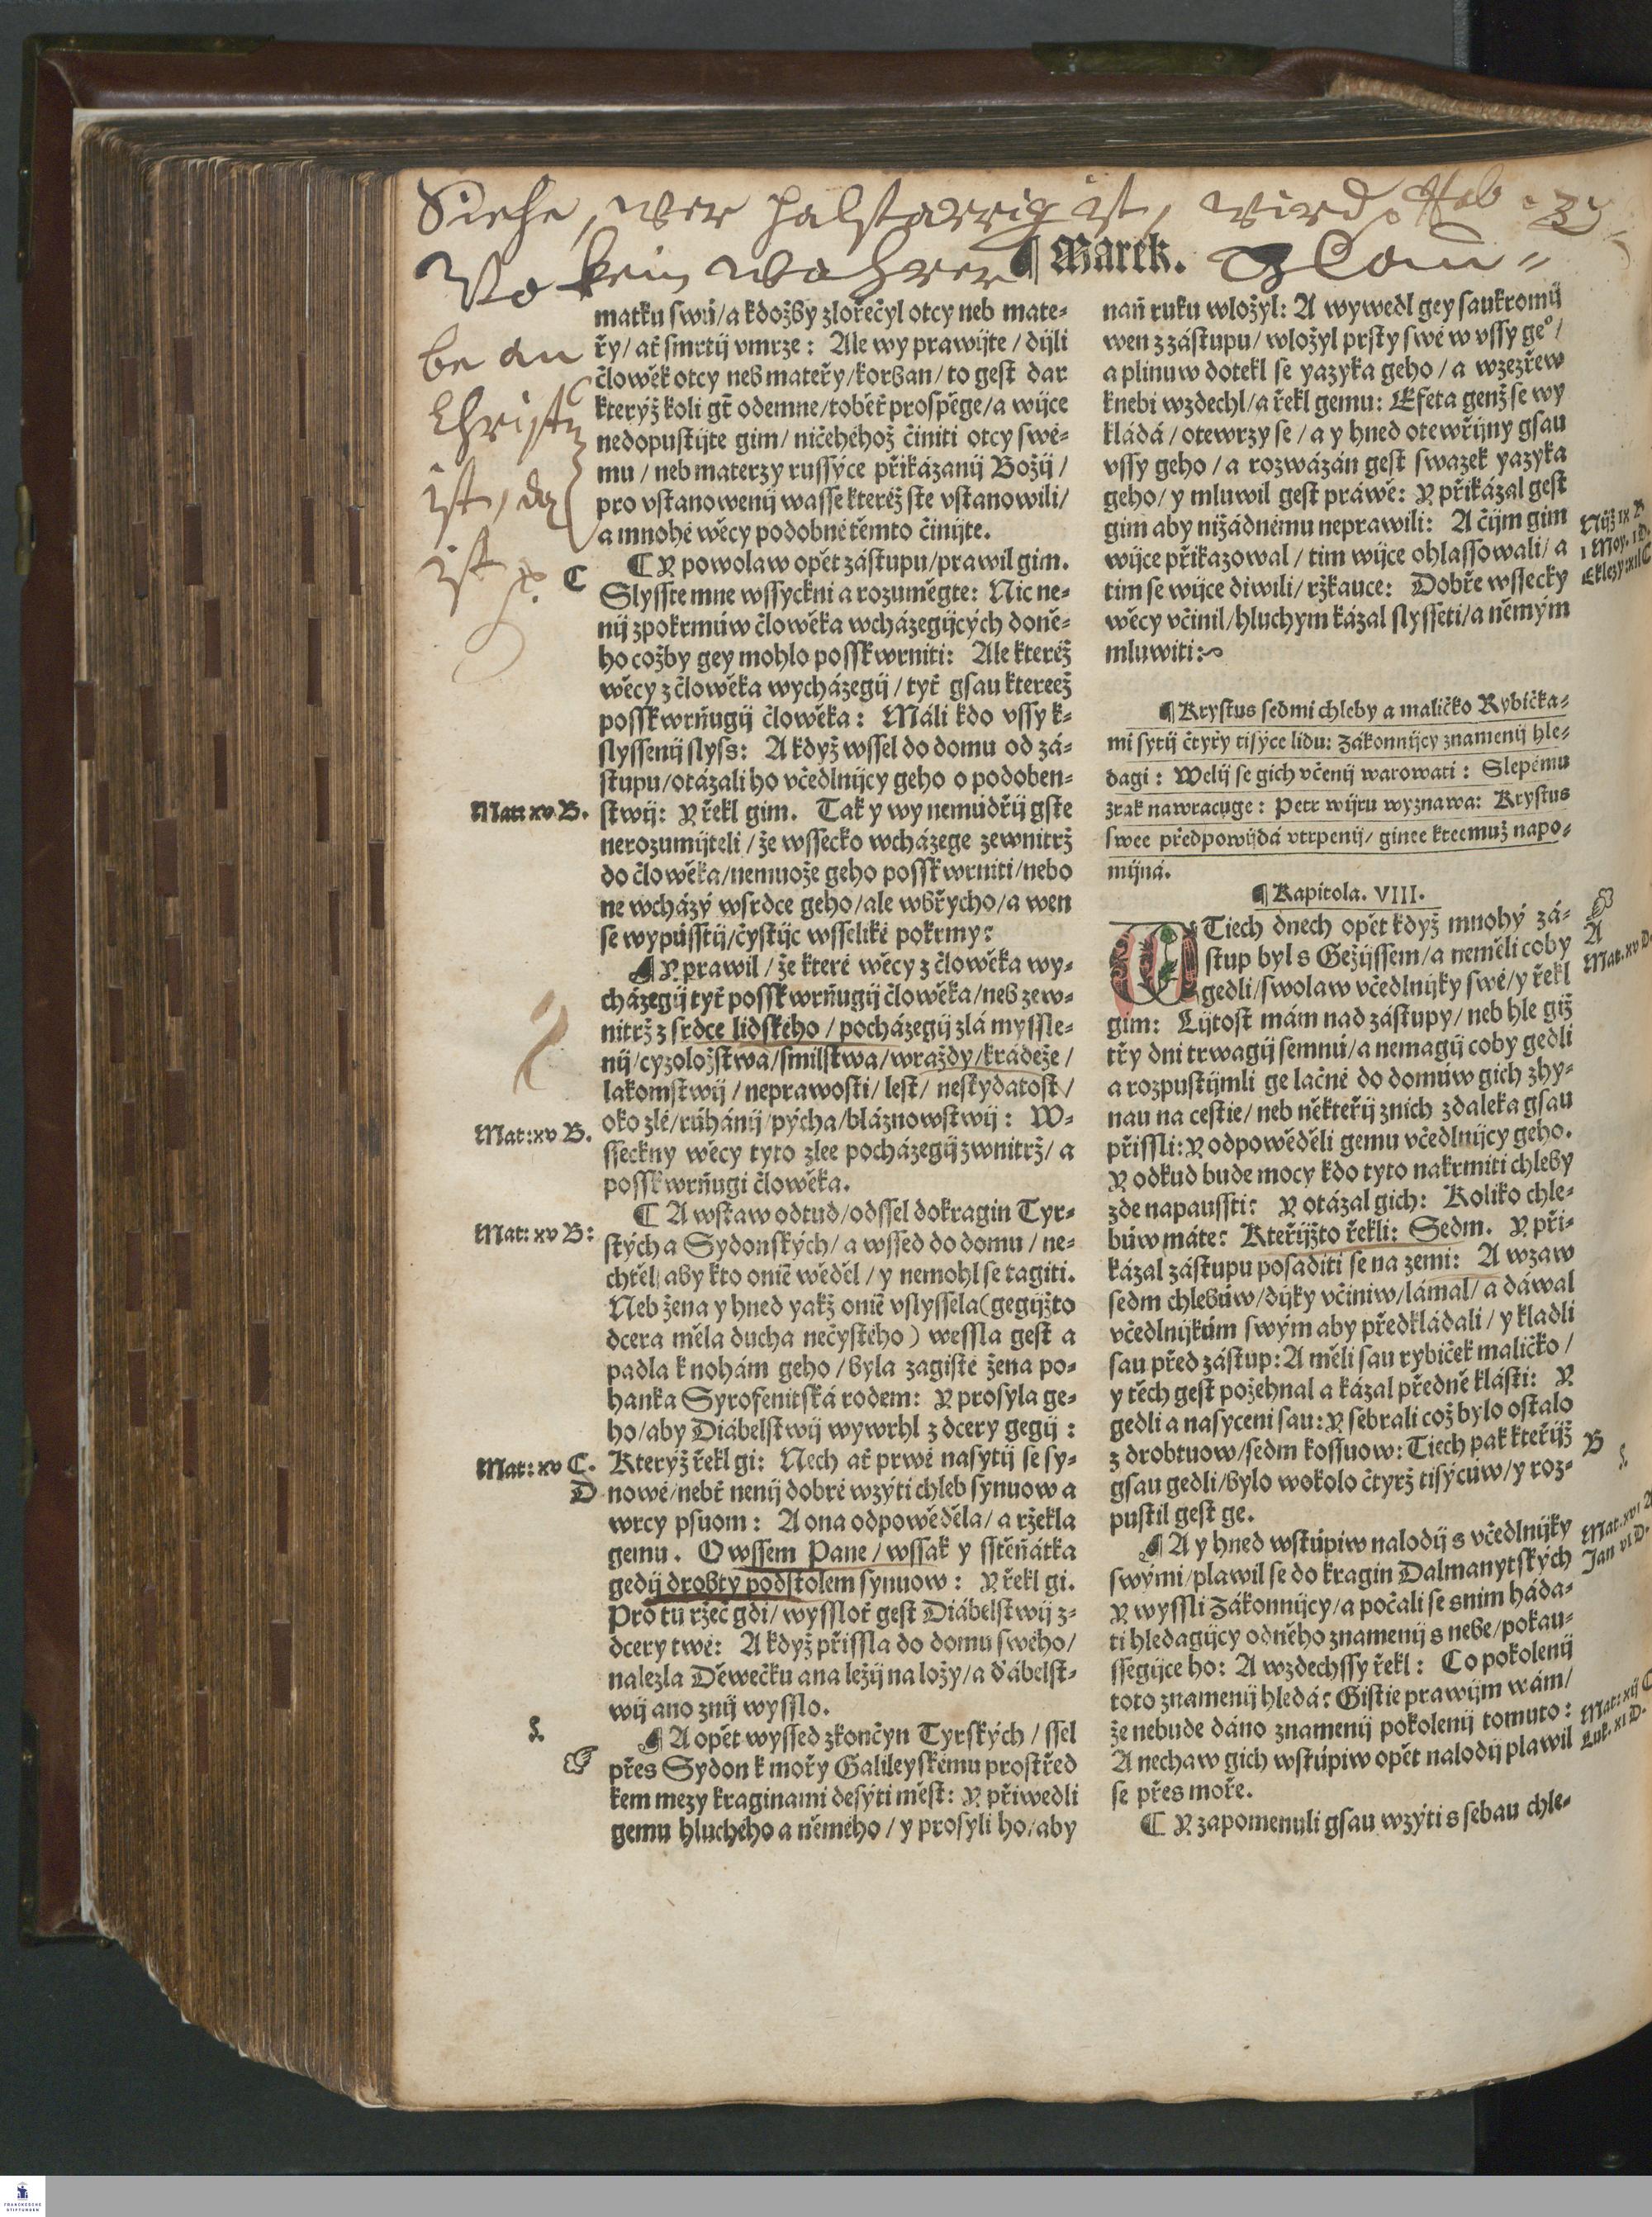 Siehe, wer halsstarrig ist, wird. Heb.
Wo kein wahrer
¶ Marek.
Glau=
be an
Christu
ist, da
ist
matku swú/a kdožby zlořečyl otcy neb mate-
řy/ ať smrtij vmrze: Ale wy prawijte / dijli
člowěk otcy neb mateřy/korban/ to gest dar
kterýž koli gť odemne/toběť prospěge/a wijce
nedopustijte gim/ ničehéhož činiti otcy swé-
mu / neb materzy russýce přikázanij Božij /
pro vstanowenij wasse kteréž ste vstanowili/
a mnohé wěcy podobné těmto činijte.
C
☾ Y powolaw opět zástupu/prawil gim.
Slysste mne wssyckni a rozuměgte: Nic ne-
nij z pokrmúw člowěka wcházegijcých doně-
ho cožby gey mohlo possk wrniti: Ale kteréž
wěcy z člowěka wycházegij / tyť gsau ktereež
possk wrňugij člowěka: Máli kdo vssy k-
slyssenij slyss: A když wssel do domu od zá-
stupu/otázali ho včedlnijcy geho o podoben-
Matt xv B.
stwij: Y řekl gim. Tak y wy nemúdřij gste
nerozumijteli / že wssecko wcházege zewnitrž
do člowěka/nemuože geho possk wrniti/nebo
ne wcházý wsrdce geho/ale wbřycho/a wen
se wypússtij/čystijc wsseliké pokrmy:
¶ Y prawil / že které wěcy z člowěka wy-
cházegij tyť possk wrňugij člowěka/neb zew-
nitrž z srdce lidského / pocházegij zlá myssle-
nij/cyzoložstwa/smilstwa/wraždy/krádeže /
lakomstwij / neprawosti/ lest/ neskydatost /
oko zlé/rúhánij/pýcha/bláznowstwij: W-
Mat:xv B.
sseckny wěcy tyto zlee pocházegij zwnitrž/ a
possk wrňugi člowěka.
☾ A wstaw odtud/odssel dokragin Tyr-
Mat: xv B:
ských a Sydonských/ a wssed do domu / ne-
chtěl aby kto oniē wěděl / y nemohl se tagiti.
Neb žena y hned yakž oniē vslyssela (gegijžto
dcera měla ducha nečystého) wessla gest a
padla k nohám geho / byla zagisté žena po-
hanka Syrofenitská rodem: Y prosyla ge-
ho/aby Diábelstwij wywrhl z dcery gegij :
Mat: xv C.
Kterýž řekl gi: Nech ať prwé nasytij se sy-
D
nowé/nebť nenij dobré wzýti chleb synuow a
wrcy psuom: A ona odpowěděla/ a ržekla
gemu. Owssem Pane / wssak y sstěňátka
gedij drobty podstolem synuow: Y řekl gi.
Pro tu ržeč gdi/ wyssloť gest Diábelstwij z-
dcery twé: A když přissla do domu swého/
nalezla Děwečku ana ležij na loży/a ďábelst-
wij ano znij wysslo.
¶ A opět wyssed zkončyn Tyrských / ssel
přes Sydon k mořy Galileyskému prostřed
kem mezy kraginami desýti měst: Y přiwedli
gemu hluchého a němého / y prosyli ho/aby
naň ruku wložyl: A wywedl gey saukromij
wen z zástupu/ wložyl prsty swé w vssy geº /
a plinuw dotekl se yazyka geho / a wzezřew
knebi wzdechl/a řekl gemu: Efeta genž se wy
kládá / otewrzy se / a y hned otewřijny gsau
vssy geho / a rozwázán gest swazek yazyka
geho/ y mluwil gest práwě: Y přikázal gest
gim aby nižádnému neprawili: A čijm gim
Nijž IX
wijce přikazowal / tim wijce ohlassowali/ a
1 Moy. 1 D.
tim se wijce diwili/ ržkauce: Dobře wssecky
Eklezy:xxij C
wěcy včinil/hluchym kázal slysseti/a němým
mluwiti:~
¶ Krystus sedmi chleby a maličko Rybička-
mi sytij čtyřy tisýce lidu: Zákonnijcy znamenij hle-
dagi: Welij se gich včenij warowati: Slepému
zrak nawracuge: Petr wijru wyznawa: Krystus
swee předpowijdá vtrpenij/ ginee kteemuž napo-
mijná.
¶ Kapitola. VIII.
A
Mat. xv D.
W Tiech dnech opět když mnohý zá-
stup byl s Gežijssem/a neměli coby
gedli/swolaw včedlnijky swé/y řekl
gim: Lijtost mám nad zástupy/ neb hle giž
třy dni trwagij semnú/a nemagij coby gedli
a rozpustijmli ge lačné do domúw gich zhy-
nau na cestie/ neb někteřij znich zdaleka gsau
přissli: Y odpowěděli gemu včedlnijcy geho.
Y odkud bude mocy kdo tyto nakrmiti chleby
zde napaussti: Y otázal gich: Koliko chle-
búw máte: Kteřijžto řekli: Sedm. Y při-
kázal zástupu posaditi se na zemi: A wzaw
sedm chlebúw/dijky včiniw/lámal/ a dáwal
včedlnijkúm swým aby předkládali / y kladli
sau před zástup: A měli sau rybiček maličko /
y těch gest požehnal a kázal předně klásti: Y
gedli a nasyceni sau: Y sebrali což bylo ostalo
z drobtuow/sedm kossuow: Tiech pak kteřijž
B
gsau gedli/bylo wokolo čtyrž tisýcúw/y roz-
pustil gest ge.
¶ A y hned wstúpiw nalodij s včedlnijky
Mat. xvi A
swými/plawil se do kragin Dalmanytských
Jan vi D.
Y wyssli Zákonnijcy/a počali se snim háda-
ti hledagijcy odněho znamenij s nebe/pokau-
ssegijce ho: A wzdechssy řekl: Co pokolenij
toto znamenij hledá: Gistie prawijm wám/
že nebude dáno znamenij pokolenij tomuto:
Mat: xij C
A nechaw gich wstúpiw opět nalodij plawil
Luk. xi D.
se přes moře.
☾ Y zapomenuli gsau wzýti s sebau chle-
FRANCKESCHE
STIFTUNGEN